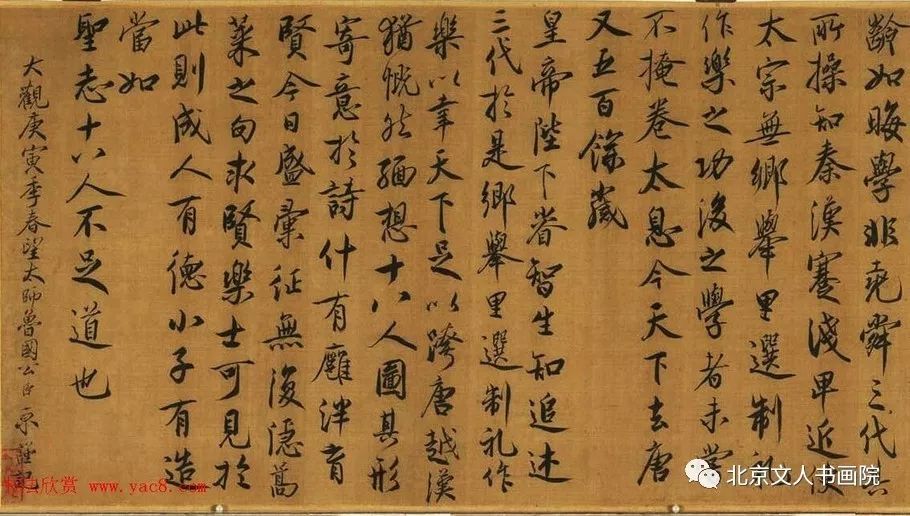 齡如晦學非堯舜三代
所操知秦漢蹇淺卑近使
太宗無鄉舉里選制礼
作樂之功後之學者未嘗
不掩卷太息今天下去唐
又五百餘歲
皇帝陛下睿智生知追述
三代於是鄉舉里選制礼作
樂以幸天下足以跨唐越漢
猶慨然緬想十八人圖其形
寄意於詩什有廱泮育
賢今日盛彙征無復隱蒿
萊之句求賢樂士可見於
此則成人有德小子有造
當如
聖志十八人不足道也
大觀庚寅季春望太師魯國公臣京謹
欣赏 www.yac8.com
北京文人书画院